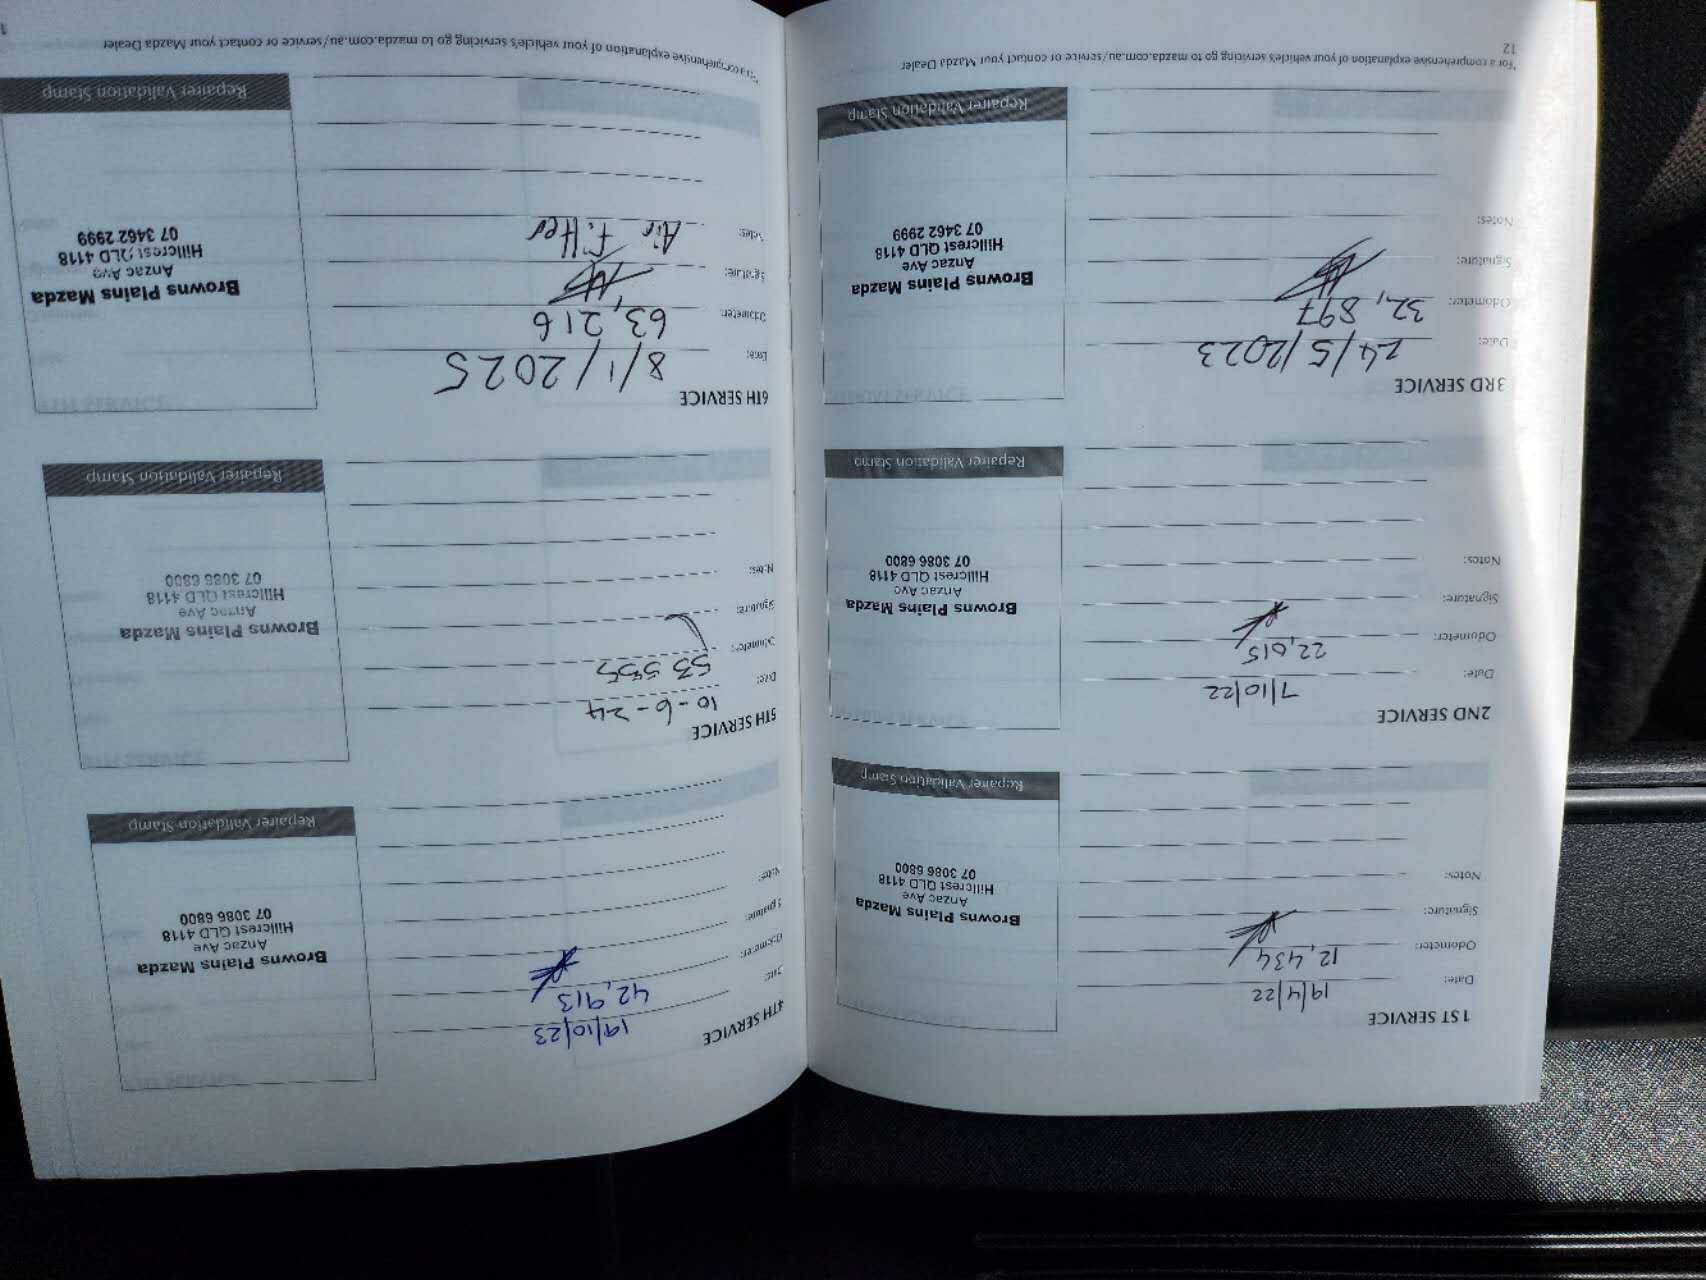 1ST SERVICE
Date: 19/4/22
Odometer: 12,434
Signature:
Notes:
Browns Plains Mazda
Anzac Ave
Hillcrest QLD 4118
07 3086 6800
Repairer Validation Stamp
2ND SERVICE
Date: 7/10/22
Odometer: 22,015
Signature:
Notes:
Browns Plains Mazda
Anzac Ave
Hillcrest QLD 4118
07 3086 6800
Repairer Validation Stamp
3RD SERVICE
Date: 24/5/2023
Odometer: 32,897
Signature:
Notes:
Browns Plains Mazda
Anzac Ave
Hillcrest QLD 4118
07 3462 2999
Repairer Validation Stamp
*For a comprehensive explanation of your vehicle's servicing go to mazda.com.au/service or contact your Mazda Dealer
12
4TH SERVICE
Date: 19/10/23
Odometer: 42,913
Signature:
Notes:
Browns Plains Mazda
Anzac Ave
Hillcrest QLD 4118
07 3086 6800
Repairer Validation Stamp
5TH SERVICE
Date: 10-6-24
Odometer: 53 555
Signature:
Notes:
Browns Plains Mazda
Anzac Ave
Hillcrest QLD 4118
07 3086 6800
Repairer Validation Stamp
6TH SERVICE
Date: 8/1/2025
Odometer: 63,216
Signature:
Notes: Air Filter
Browns Plains Mazda
Anzac Ave
Hillcrest QLD 4118
07 3462 2999
Repairer Validation Stamp
*For a comprehensive explanation of your vehicle's servicing go to mazda.com.au/service or contact your Mazda Dealer